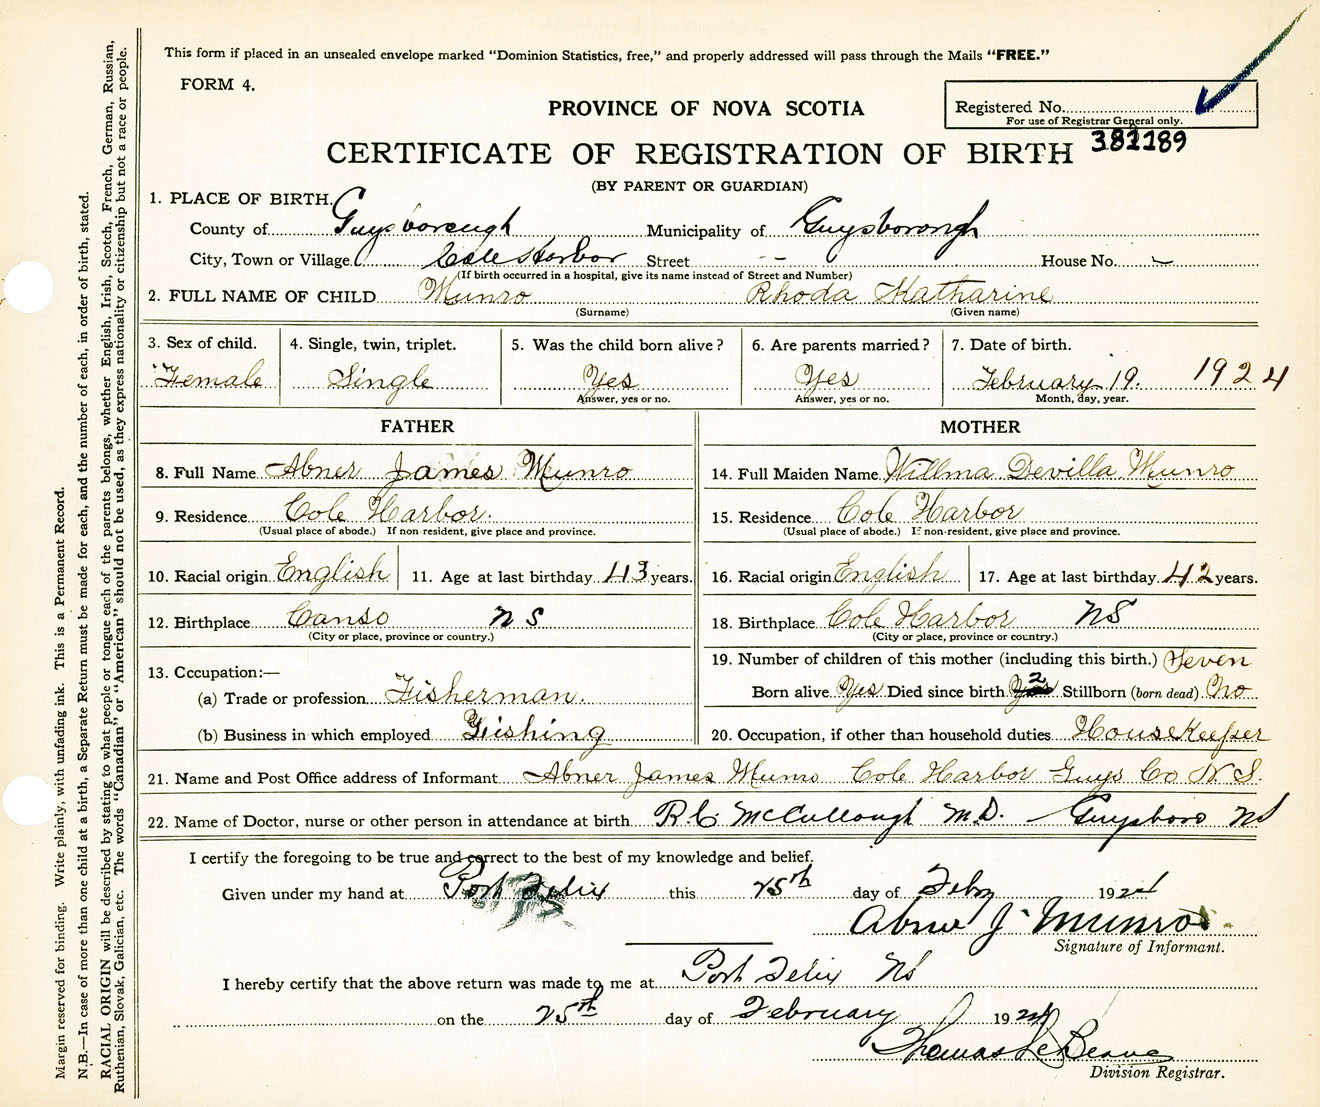 This form if placed in an unsealed envelope marked "Dominion Statistics, free," and properly addressed will pass through the Mails "FREE."
FORM 4.
PROVINCE OF NOVA SCOTIA
Registered No.
For use of Registrar General only.
CERTIFICATE OF REGISTRATION OF BIRTH
(BY PARENT OR GUARDIAN)
1. PLACE OF BIRTH.
County of Guysborough Municipality of Guysborough
City, Town or Village Cole Harbor Street -- House No. -
(If birth occurred in a hospital, give its name instead of Street and Number)
2. FULL NAME OF CHILD Munro Rhoda Katharine
(Surname) (Given name)
3. Sex of child. 4. Single, twin, triplet. 5. Was the child born alive? 6. Are parents married? 7. Date of birth.
Female Single Yes Yes February 19. 1924
Answer, yes or no. Answer, yes or no. Month, day, year.
FATHER MOTHER
8. Full Name Abner James Munro 14. Full Maiden Name Willma Devilla Munro
9. Residence Cole Harbor. 15. Residence Cole Harbor
(Usual place of abode.) If non-resident, give place and province. (Usual place of abode.) If non-resident, give place and province.
10. Racial origin English 11. Age at last birthday 43 years. 16. Racial origin English 17. Age at last birthday 42 years.
12. Birthplace Canso N S 18. Birthplace Cole Harbor NS
(City or place, province or country.) (City or place, province or country.)
13. Occupation:— 19. Number of children of this mother (including this birth.) Seven
(a) Trade or profession Fisherman. Born alive Yes Died since birth 2 Stillborn (born dead) No
(b) Business in which employed Fishing 20. Occupation, if other than household duties HouseKeeper
21. Name and Post Office address of Informant Abner James Munro Cole Harbor Guys Co N S.
22. Name of Doctor, nurse or other person in attendance at birth R.C. McCullough M.D. Guysboro NS
I certify the foregoing to be true and correct to the best of my knowledge and belief.
Given under my hand at Port Felix this 25th day of Feby 1924
Abner J. Munro
Signature of Informant.
I hereby certify that the above return was made to me at Port Felix NS
on the 25th day of February 1924
Thomas LeBlanc
Division Registrar.
Margin reserved for binding. Write plainly, with unfading ink. This is a Permanent Record.
N.B.—In case of more than one child at a birth, a Separate Return must be made for each, and the number of each, in order of birth, stated.
RACIAL ORIGIN will be described by stating to what people or tongue each of the parents belongs, whether English, Irish, Scotch, French, German, Russian,
Ruthenian, Slovak, Galician, etc. The words "Canadian" or "American" should not be used, as they express nationality or citizenship but not a race or people.